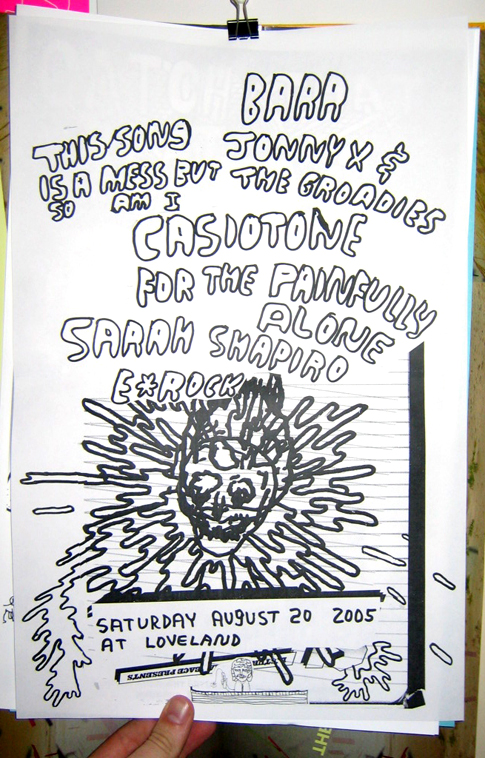 BARR
THIS SONG
IS A MESS BUT
SO AM I
JONNY X &
THE GROADIES
CASIOTONE
FOR THE PAINFULLY
ALONE
SARAH SHAPIRO
E*ROCK
SATURDAY AUGUST 20 2005
AT LOVELAND
ACE PRESENTS